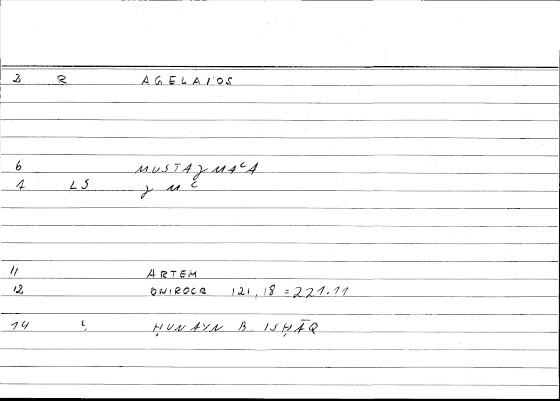 2 R AGELAIOS
6 MUSTAǧMAʿA
1 LS ǧMʿ
11 ARTEM
12 ONIROCR 121,18 = 221.11
14 ḤUNAYN B. ISḤĀQ